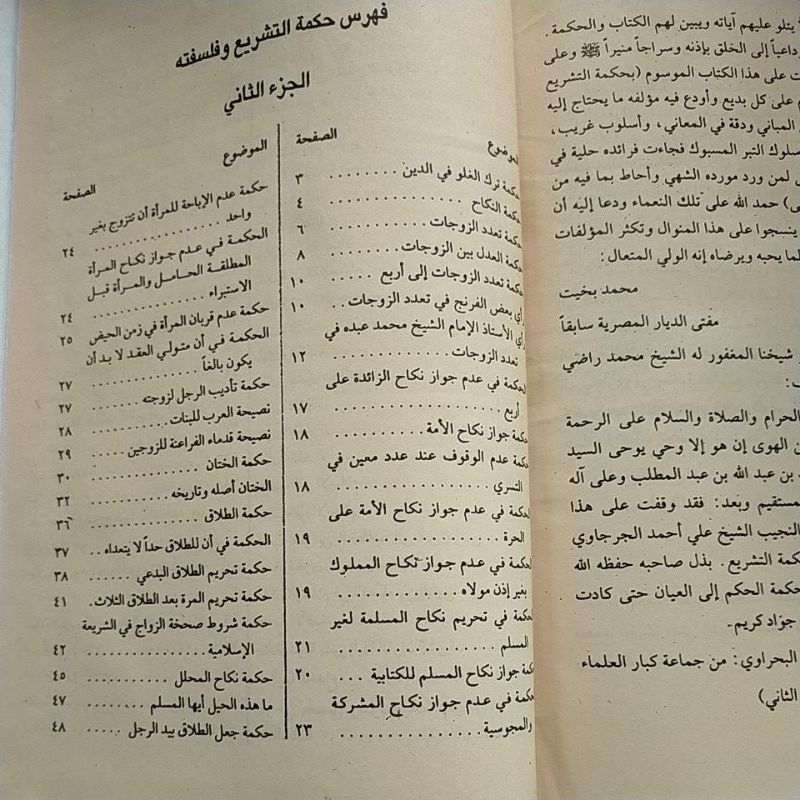 يتلو عليهم آياته ويبين لهم الكتاب والحكمة.
داعياً إلى الخلق بإذنه وسراجاً منيراً ﷺ وعلى
على هذا الكتاب الموسوم (بحكمة التشريع
على كل بديع وأودع فيه مؤلفه ما يحتاج إليه
المباني ودقة في المعاني، وأسلوب غريب،
سلوك التبر المسبوك فجاءت فرائده حلية في
لمن ورد مورده الشهي وأحاط بما فيه من
حمد الله على تلك النعماء ودعا إليه أن
ينسجوا على هذا المنوال وتكثر المؤلفات
لما يحبه ويرضاه إنه الولي المتعال:
محمد بخيت
مفتى الديار المصرية سابقاً
شيخنا المغفور له الشيخ محمد راضي
الحرام والصلاة والسلام على الرحمة
الهوى إن هو إلا وحي يوحى السيد
بن عبد الله بن عبد المطلب وعلى آله
المستقيم وبعد: فقد وقفت على هذا
النجيب الشيخ علي أحمد الجرجاوي
حكمة التشريع. بذل صاحبه حفظه الله
حكمة الحكم إلى العيان حتى كادت
جوّاد كريم.
البحراوي: من جماعة كبار العلماء
الثاني)
فهرس حكمة التشريع وفلسفته
الجزء الثاني
الموضوع الصفحة
حكمة ترك الغلو في الدين ......... ٣
حكمة النكاح ......... ٤
حكمة تعدد الزوجات ......... ٦
حكمة العدل بين الزوجات ......... ٨
حكمة تعدد الزوجات إلى أربع ..... ١٠
رأي بعض الفرنج في تعدد الزوجات .. ١٠
رأي الأستاذ الإمام الشيخ محمد عبده في
تعدد الزوجات ......... ١٢
الحكمة في عدم جواز نكاح الزائدة على
أربع ......... ١٧
حكمة جواز نكاح الأمة ......... ١٨
حكمة عدم الوقوف عند عدد معين في
التسري ......... ١٨
الحكمة في عدم جواز نكاح الأمة على
الحرة ......... ١٩
الحكمة في عدم جواز نكاح المملوك
بغير إذن مولاه ......... ١٩
الحكمة في تحريم نكاح المسلمة لغير
المسلم ......... ٢١
حكمة جواز نكاح المسلم للكتابية ... ٢٠
الحكمة في عدم جواز نكاح المشركة
والمجوسية ......... ٢٣
الموضوع الصفحة
حكمة عدم الإباحة للمرأة أن تتزوج بغير
واحد ......... ٢٤
الحكمة في عدم جواز نكاح المرأة
المطلقة الحامل والمرأة قبل
الاستبراء ......... ٢٤
حكمة عدم قربان المرأة في زمن الحيض ٢٥
الحكمة في أن متولي العقد لا بد أن
يكون بالغاً ......... ٢٧
حكمة تأديب الرجل لزوجته ....... ٢٧
نصيحة العرب للبنات ......... ٢٨
نصيحة قدماء الفراعنة للزوجين ..... ٢٩
حكمة الختان ......... ٣٠
الختان أصله وتاريخه ......... ٣٢
حكمة الطلاق ......... ٣٦
الحكمة في أن للطلاق حداً لا يتعداه .. ٣٧
حكمة تحريم الطلاق البدعي ...... ٣٨
حكمة تحريم المرة بعد الطلاق الثلاث. ٤١
حكمة شروط صحخة الزواج في الشريعة
الإسلامية ......... ٤٢
حكمة نكاح المحلل ......... ٤٥
ما هذه الحيل أيها المسلم ......... ٤٧
حكمة جعل الطلاق بيد الرجل ..... ٤٨